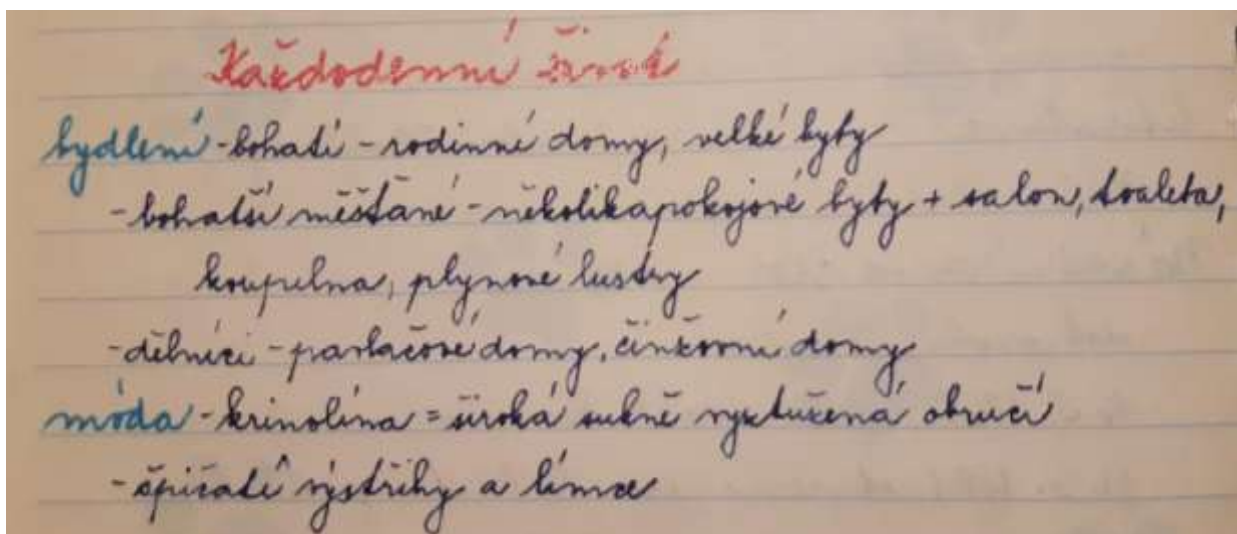 Každodenní život
bydlení - bohatí - rodinné domy, velké byty
- bohatší měšťané - několikapokojové byty + salon, toaleta,
koupelna, plynové lustry
- dělníci - pavlačové domy, činžovní domy
móda - krinolína = široká sukně vyztužená obručí
- špičaté výstřihy a límce